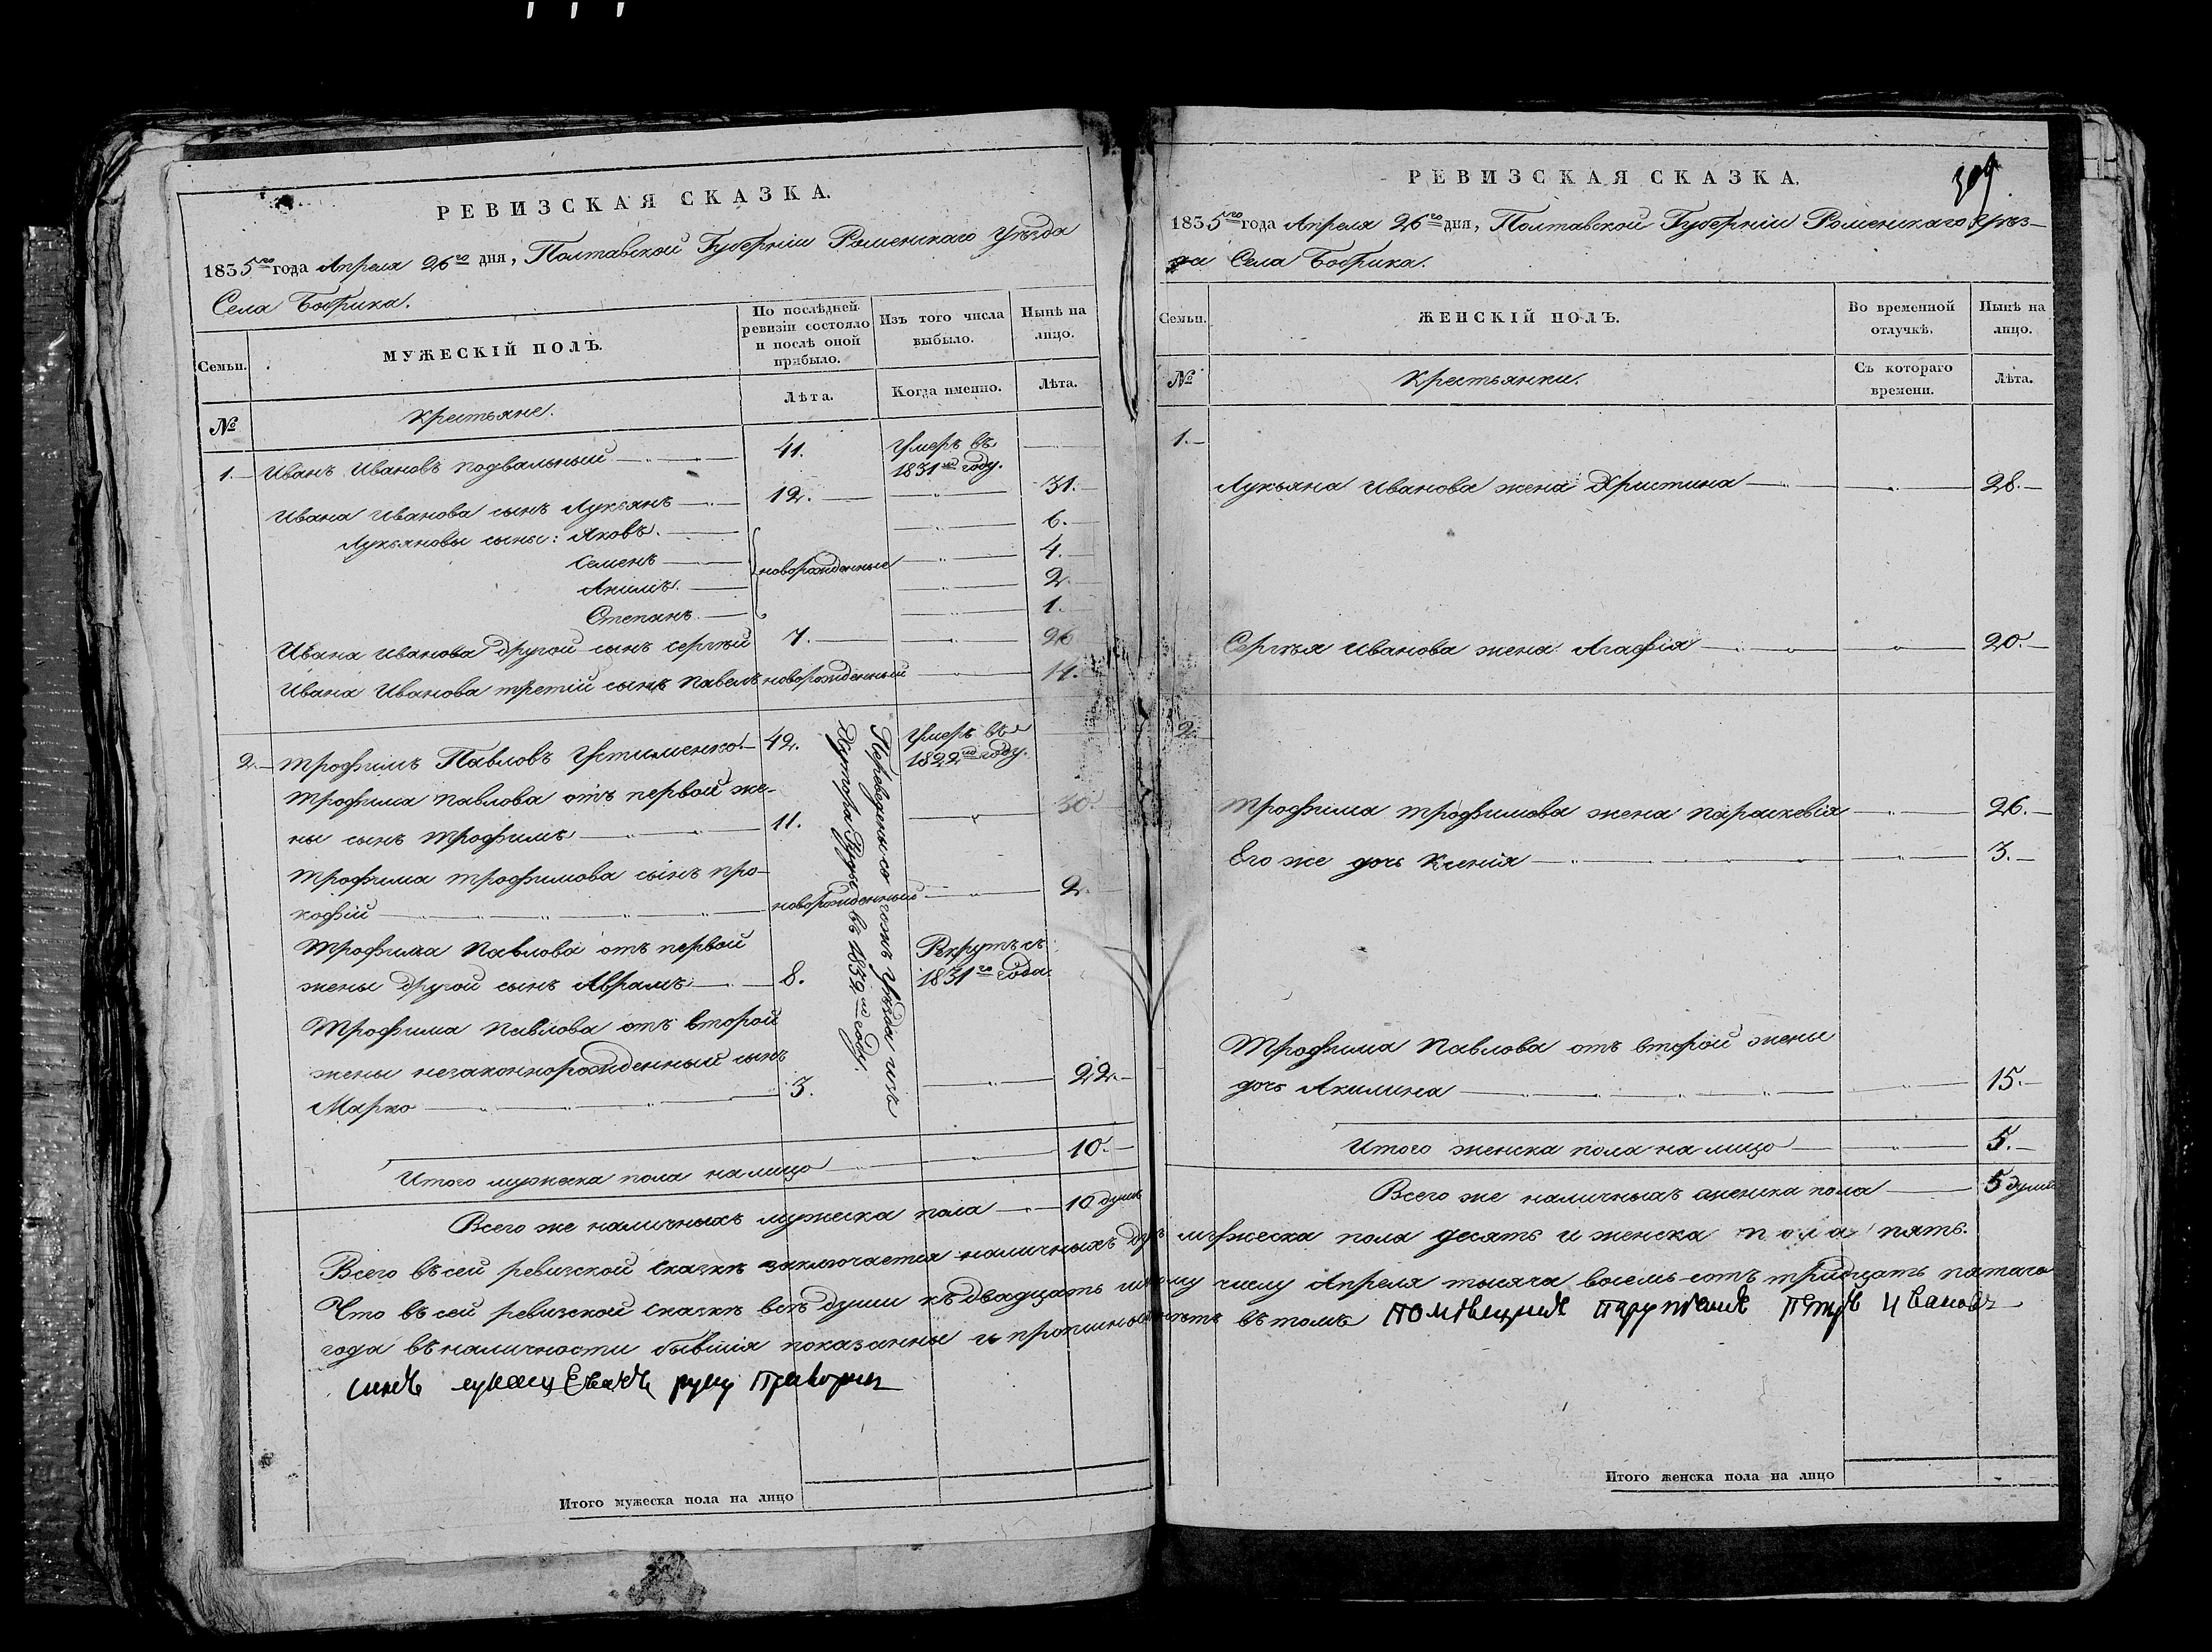 РЕВИЗСКАЯ СКАЗКА.
1835го года Апреля 26го дня, Полтавской Губерніи Роменскаго Уѣзда
Села Бобрика.
Семьи.
МУЖЕСКІЙ ПОЛЪ.
По послѣдней ревизіи состояло и послѣ оной прибыло.
Изъ того числа выбыло.
Нынѣ на лицо.
№
Крестьяне.
Лѣта.
Когда именно.
Лѣта.
1. Иванъ Ивановъ Подвальный 41. Умеръ въ 1831мъ году.
Ивана Иванова сынъ Лукьянъ 12. 31.
Лукьяновы сыны: Яковъ. новорожденные 6.
Семенъ 4.
Акимъ. 2.
Степанъ 1.
Ивана Иванова другой сынъ Сергѣй 7. 26
Ивана Иванова третій сынъ Павелъ новорожденный 14.
2. Трофимъ Павловъ Устименко 42. Умеръ въ 1822мъ году.
Трофима Павлова отъ первой же-
ны сынъ Трофимъ 11. 30.
Трофима Трофимова сынъ Про-
кофій новорожденный 2.
Трофима Павлова отъ первой
жены другой сынъ Абрамъ 8. Рекрутъ съ 1831го года.
Трофима Павлова отъ второй
жены незаконнорожденный сынъ
Марко 3. 22.
Переведены со гонъ Уѣзда изъ
Хутора в 1832м году.
Итого мужеска пола на лицо 10.
Всего же наличныхъ мужеска пола 10 душъ
РЕВИЗСКАЯ СКАЗКА.
309
1835го года Апреля 26го дня, Полтавской Губерніи Роменскаго Уѣз-
да Села Бобрика.
Семьи.
ЖЕНСКІЙ ПОЛЪ.
Во временной отлучкѣ.
Нынѣ на лицо.
№
Крестьянки.
Съ котораго времени.
Лѣта.
1.
Лукьяна Иванова жена Христина 28.
Сергѣя Иванова жена Агафія 20.
2.
Трофима Трофимова жена Параскевія 26.
Его же дочь Ксенія 3.
Трофима Павлова отъ второй жены
дочь Акилина 15.
Итого женска пола на лицо 5.
Всего же наличныхъ женска пола 5 душъ
Всего въ сей ревизской сказкѣ заключается наличныхъ душъ мужеска пола десять и женска пола пять.
Что въ сей ревизской сказкѣ всѣ души къ двадцать шестому числу Апреля тысяча восемь сотъ тридцать пятаго
года въ наличности бывшія показанны и прописной нѣтъ въ томъ Петръ Ивановъ
синъ руку приложилъ
Итого мужеска пола на лицо
Итого женска пола на лицо